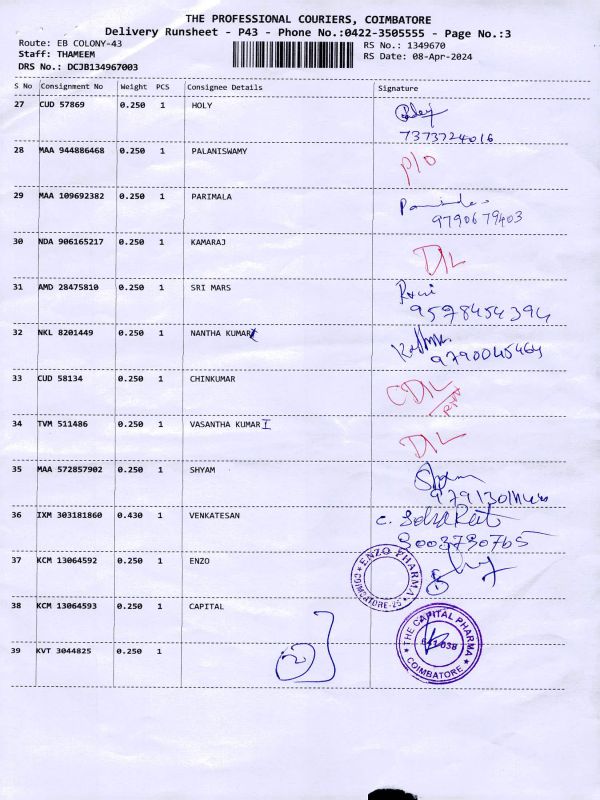 THE PROFESSIONAL COURIERS, COIMBATORE
Delivery Runsheet - P43 - Phone No.:0422-3505555 - Page No.:3
Route: EB COLONY-43
RS No.: 1349670
Staff: THAMEEM
RS Date: 08-Apr-2024
DRS No.: DCJB134967003
S No Consignment No Weight PCS Consignee Details Signature
27 CUD 57869 0.250 1 HOLY
7373724016
28 MAA 944886468 0.250 1 PALANISWAMY P/O
29 MAA 109692382 0.250 1 PARIMALA
9790679403
30 NDA 906165217 0.250 1 KAMARAJ D/L
31 AMD 28475810 0.250 1 SRI MARS
9578454394
32 NKL 8201449 0.250 1 NANTHA KUMAR
9790045464
33 CUD 58134 0.250 1 CHINKUMAR
34 TVM 511486 0.250 1 VASANTHA KUMAR I D/L
35 MAA 572857902 0.250 1 SHYAM Shyam
36 IXM 303181860 0.430 1 VENKATESAN
37 KCM 13064592 0.250 1 ENZO ENZO PHARMA COIMBATORE-25
38 KCM 13064593 0.250 1 CAPITAL THE CAPITAL PHARMA COIMBATORE
39 KVT 3044825 0.250 1
2